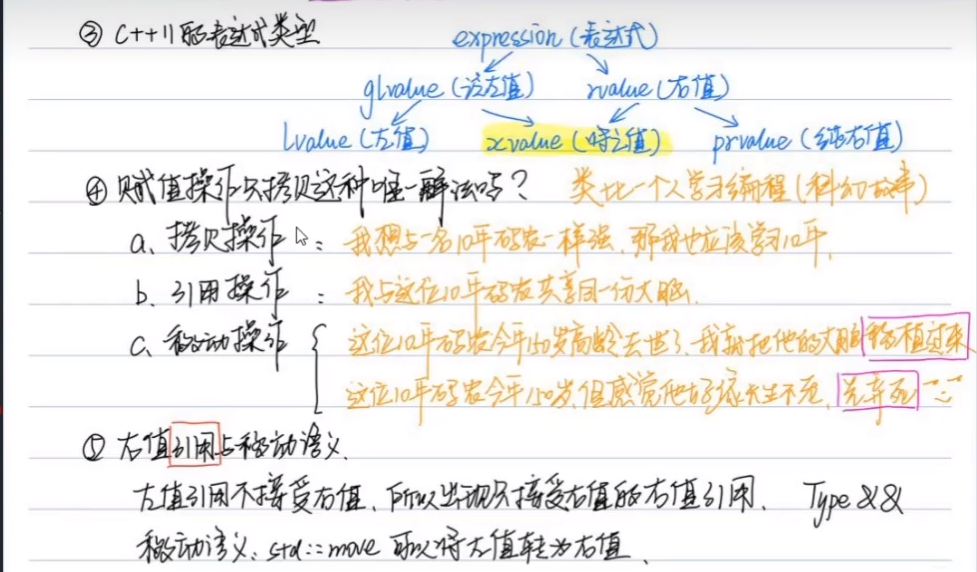 ③ C++11的表达式类型
expression (表达式)
glvalue (泛左值) rvalue (右值)
lvalue (左值) xvalue (将亡值) prvalue (纯右值)
④ 赋值操作只拷贝这种唯一解法吗? 类比一个人学习编程 (科幻故事)
a、拷贝操作 : 我想与一名10年码农一样强、那我也应该学习10年.
b、引用操作 : 我与这位10年码农共享同一份大脑.
c、移动操作 { 这位10年码农今年150岁高龄去世了、我就把他的大脑移植过来
这位10年码农今年150岁,但感觉他好像长生不死、先弄死
⑤ 右值引用与移动语义.
左值引用不接受右值、所以出现只接受右值的右值引用. Type &&
移动语义: std::move 可以将左值转为右值.